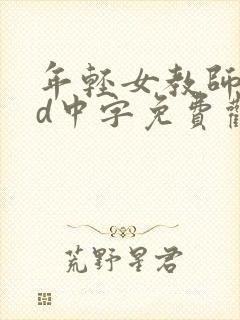 年輕女教師
d中字免費觀
荒野星君